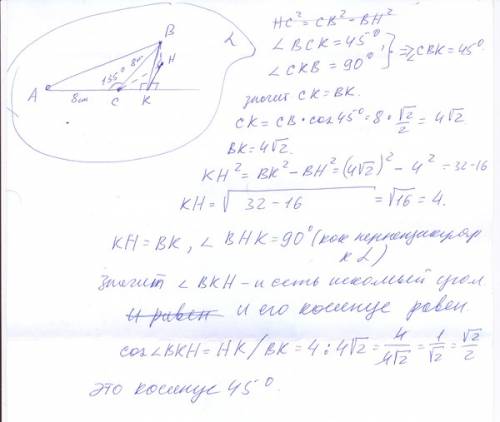 HC² = CB² - BH²
∠BCK = 45°
∠CKB = 90°
} => ∠CBK = 45°
значит CK = BK.
CK = CB · cos 45° = 8 · √2/2 = 4√2
BK = 4√2.
KH² = BK² - BH² = (4√2)² - 4² = 32 - 16
KH = √32 - 16 = √16 = 4.
KH = BK, ∠BHK = 90° (как перпендикуляр
к α)
Значит ∠BKH - и есть искомый угол
и равен и его косинус равен
cos∠BKH = HK / BK = 4 : 4√2 = 4/4√2 = 1/√2 = √2/2
это косинус 45°.
B
α
H
135°
8
A
8см
C
K